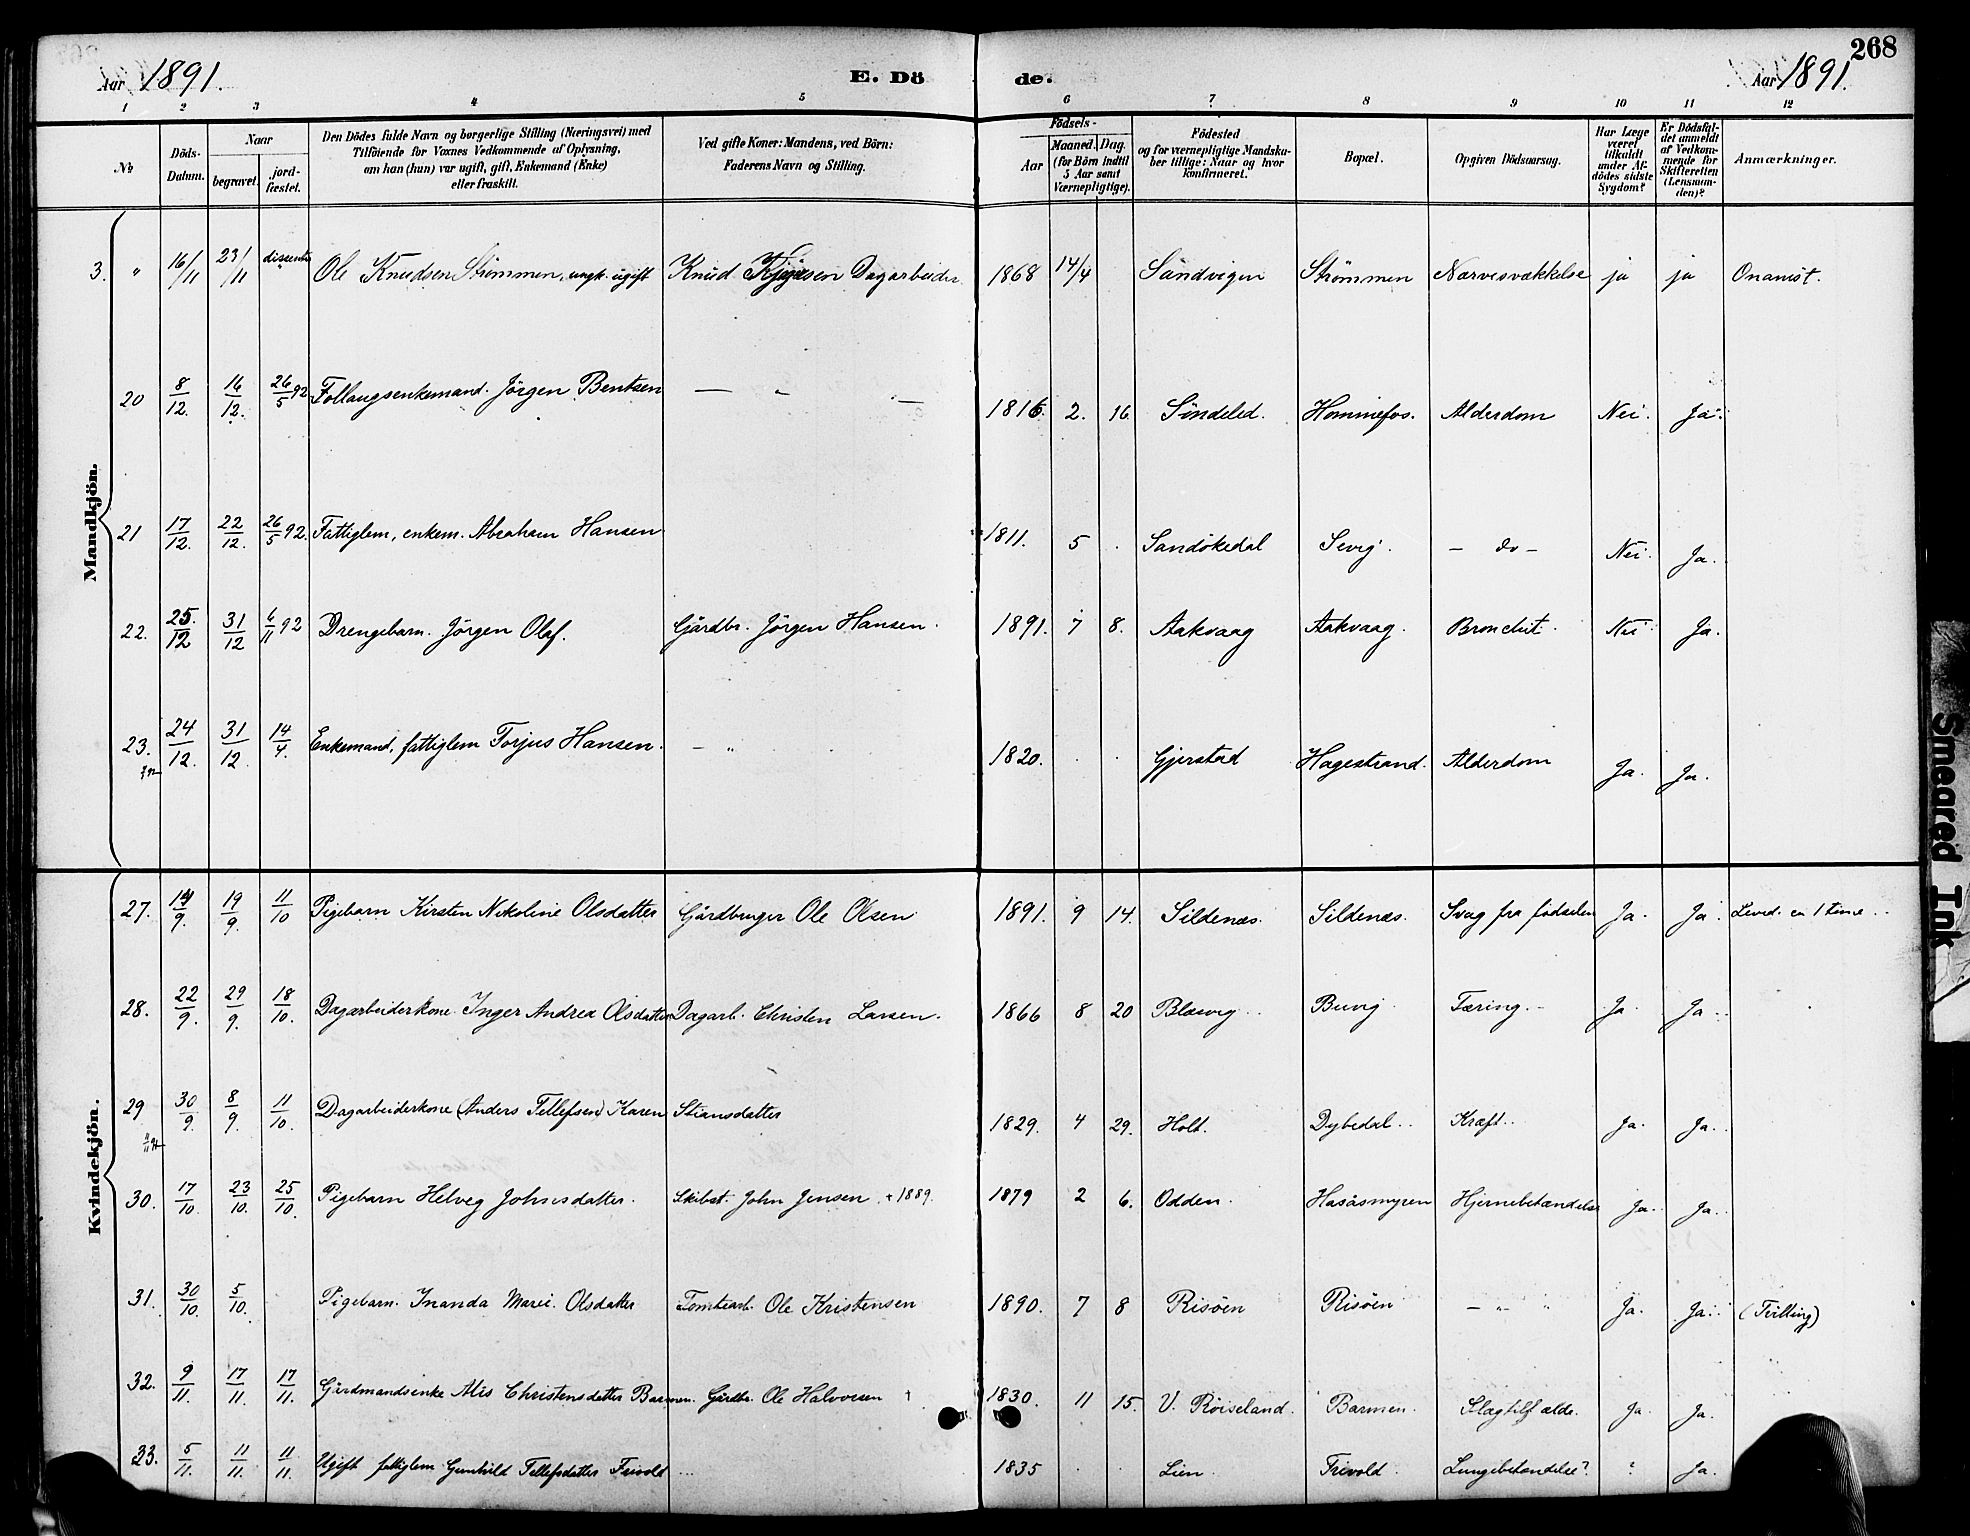 268
Aar 1891. E. Dö de. Aar 1891.
1 2 3 4 5 6 7 8 9 10 11 12
No
Döds-Datum.
Naar
begravet.
jord-fæstet.
Den Dödes fulde Navn og borgerlige Stilling (Næringsvei) med
Tilföiende for Voxnes Vedkommende af Oplysning,
om han (hun) var ugift, gift, Enkemand (Enke)
eller fraskilt.
Ved gifte Koner: Mandens, ved Börn:
Faderens Navn og Stilling.
Födsels-
Aar
Maaned. Dag.
(for Börn indtil
5 Aar samt
Værnepligtige).
Födested
og for værnepligtige Mandska-
ber tillige: Naar og hvor
konfirmeret.
Bopæl.
Opgiven Dödsaarsag.
Har Læge
været
tilkaldt
under Af-
dödes sidste
Sygdom?
Er Dödsfal-
det anmeldt
af Vedkom-
mende for
Skifteretten
(Lensman-
den)?
Anmærkninger.
Mandkjön.
3. " 16/11 23/11 dissenter Ole Knudsen Strømmen, ungk. ugift Knud Dagarbeider 1868 14/4 Sandvigen Strømmen Nervesvækkelse ja ja Onanist.
20 8/12. 16/12. 26/5 92 Follaugsenkemand. Jörgen Bentsen — " — 1816. 2. 16. Söndeled. Hommefos. Alderdom Nei. Ja.
21 17/12. 22/12. 26/5 92. Fattiglem, enkem. Abraham Hansen 1811. 5 . Sandökedal Sevig. — do — Nei. Ja.
22. 25./12 31/12 6/11 92 Drengebarn. Jörgen Olaf. Gårdbr. Jörgen Hansen. 1891. 7 8. Aakvaag Aakvaag. Bronchit. Nei Ja.
23. 24/12. 31/12. 14/4. Enkemand, fattiglem Torjus Hansen. — " 1820. . . Gjerstad Hagestrand. Alderdom Ja. Ja.
Kvindekjön.
27. 14/9. 19/9. 11/10 Pigebarn Kirsten Nikoline Olsdatter Gårdbruger Ole Olsen 1891. 9 14. Sildenæs. Sildenæs. Svag fra födselen Ja. Ja. Leved. ca 1 time
28. 22/9. 29/9. 18/10. Dagarbeiderkone Inger Andrea Olsdatter Dagarb. Christen Larsen. 1866 8 20 Blæsvig Buvig Tæring. Ja. Ja.
29 30/9. 8/9. 11/10. Dagarbeiderkone (Anders Tellefsen) Karen Stiansdatter 1829. 4 29. Holt. Dybedal. Kræft. Ja. Ja.
30. 17/10. 23/10. 25/10. Pigebarn Helveg Johnsdatter. Skibst. John Jensen + 1889. 1879 2 6. Odden. Hasåsmyren Hjernebetændelse Ja. Ja.
31. 30/10. 5/10. Pigebarn. Inanda Marie. Olsdatter Tomtearb. Ole Kristensen 1890. 7 8 Risöen Risöen — " " Ja. Ja. (Tvilling)
32. 9/11. 17/11. 17/11. Gårdmandsenke Alis Christensdatter Barmen. Gårdbr. Ole Halvorsen † 1830. 11 15. V. Röiseland. Barmen. Slagtilf ælde. Ja. Ja.
33. 5/11. 11/11. 11/11. Ugift fattiglem Gunhild Tellefsdatter Frivold ... 1835 Lien. Frivold. Lungebetændelse? ? Ja.
Smeared Ink